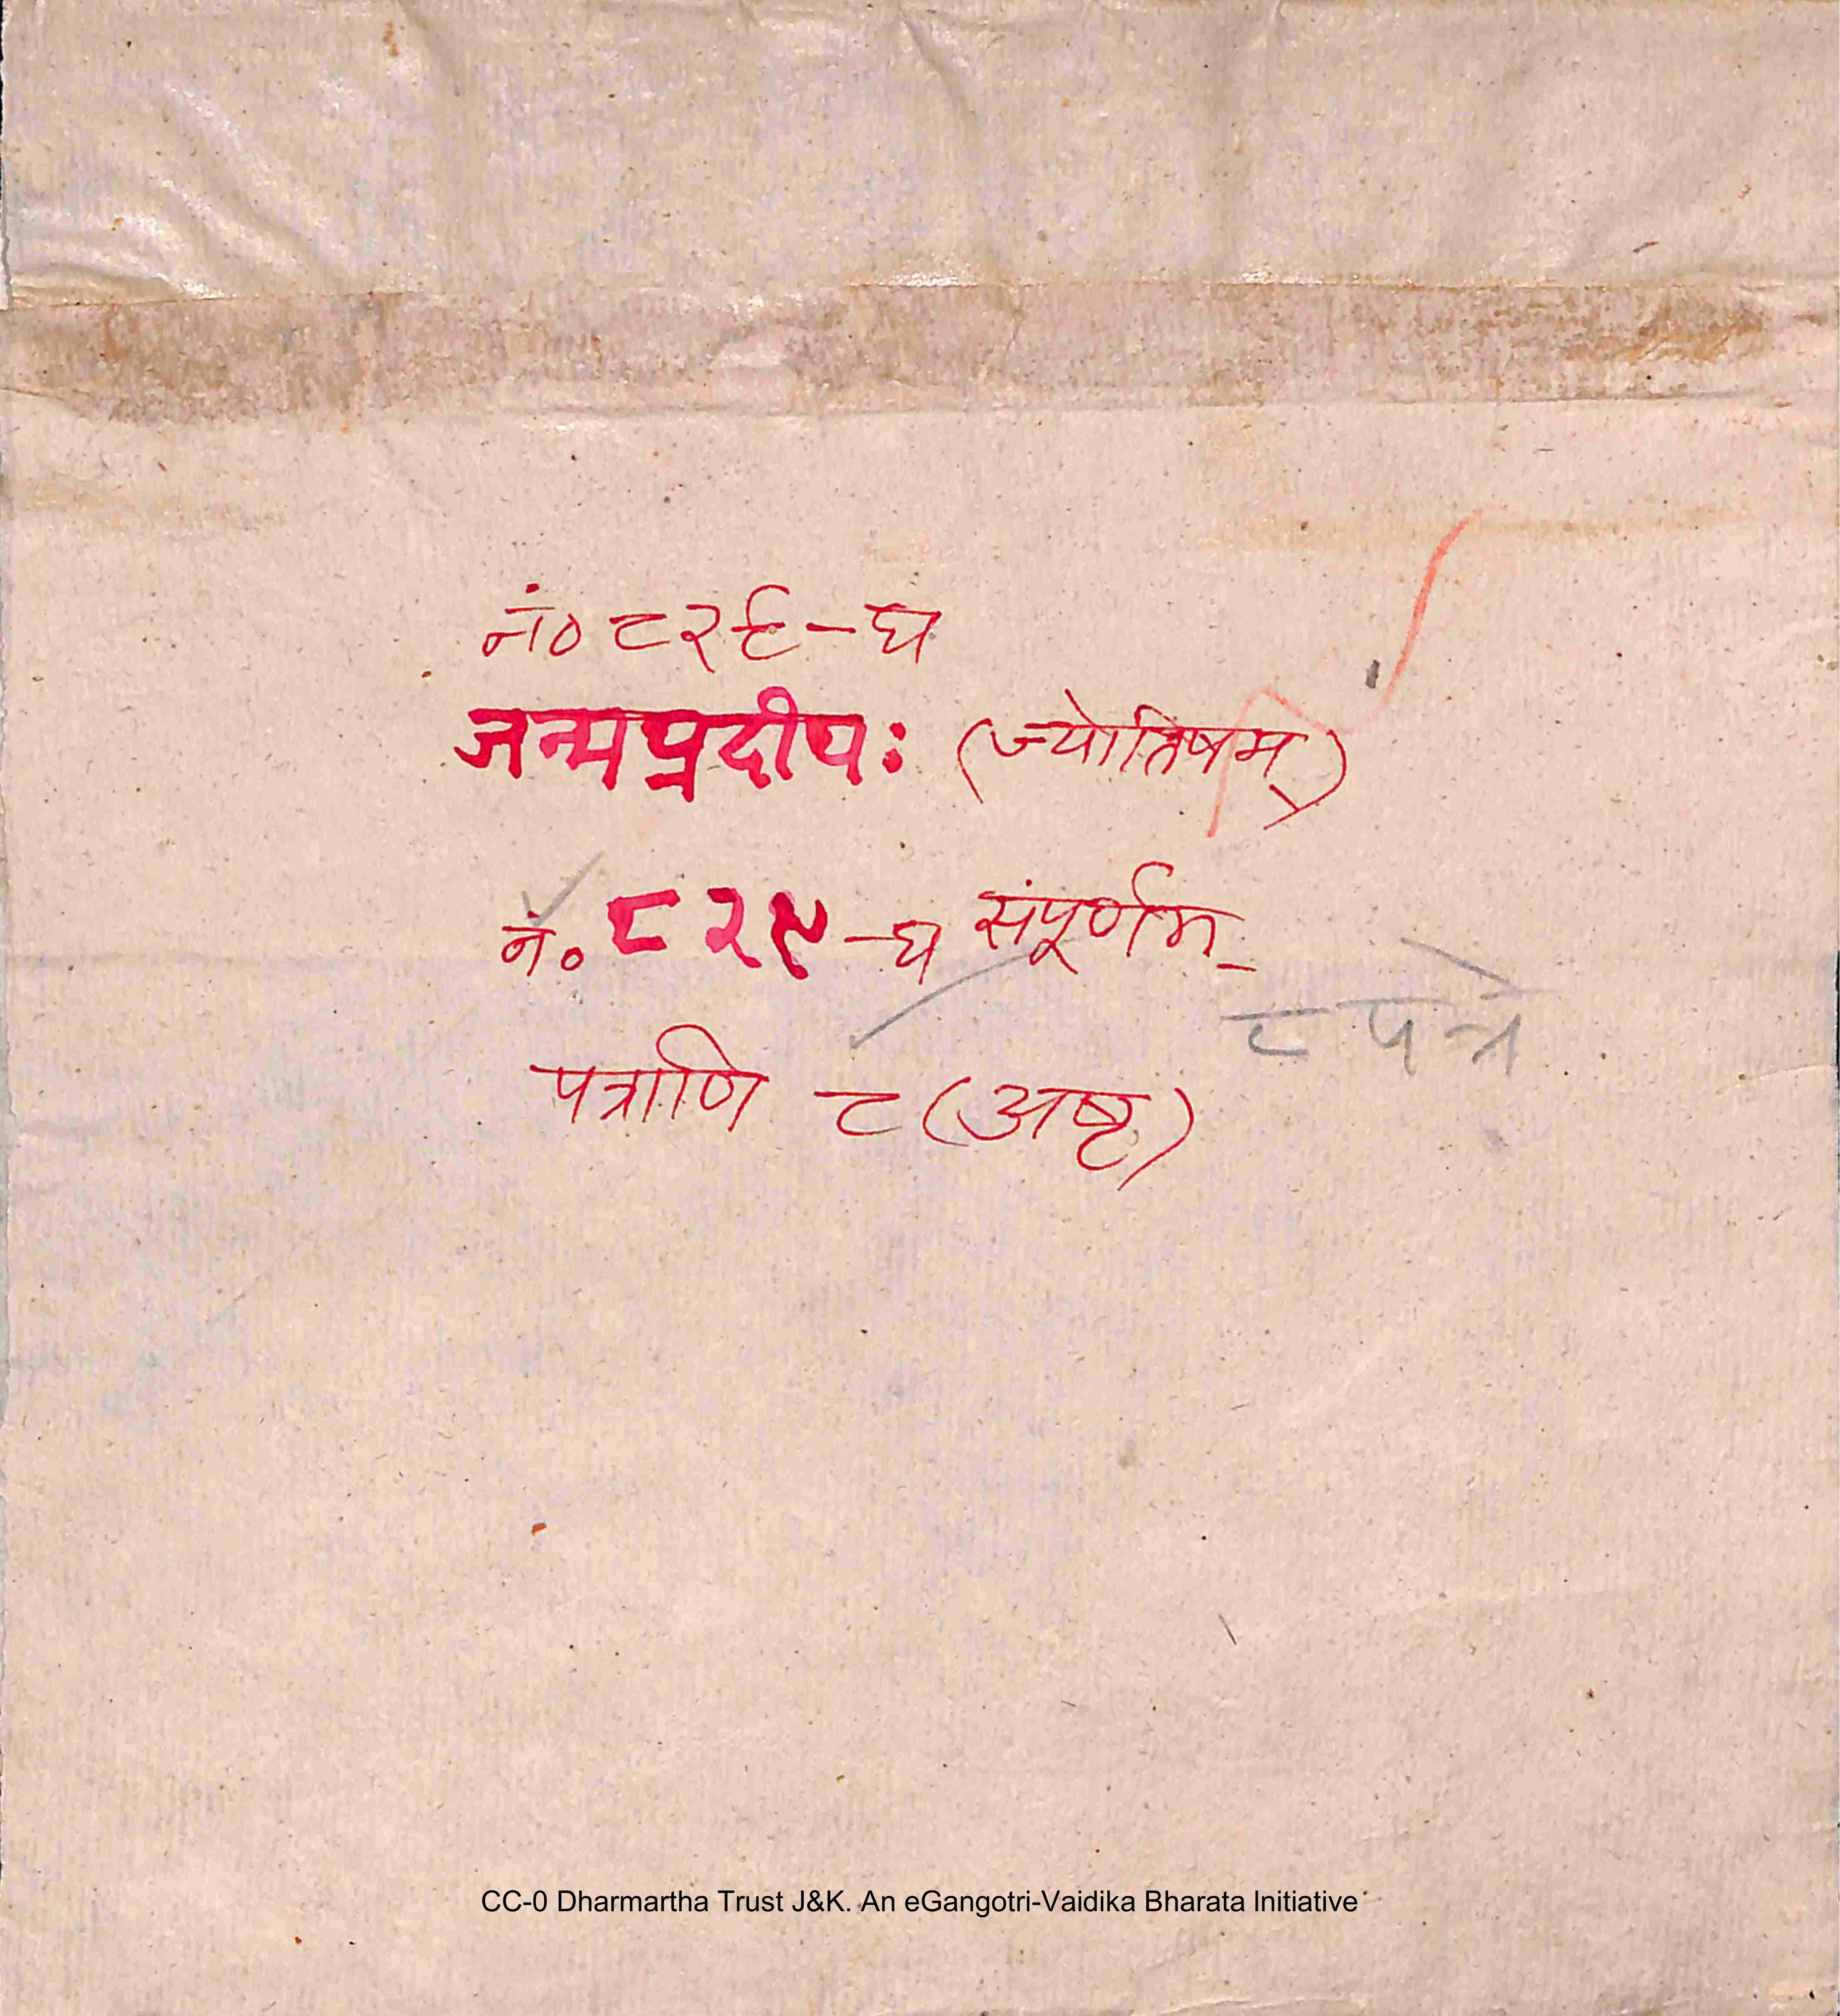 नं० ८२९-घ
जन्मप्रदीपः (ज्योतिषम्)
नं० ८२९-घ संपूर्णम्
८ पत्रे
पत्राणि ८ (अष्ट)
CC-0 Dharmartha Trust J&K. An eGangotri-Vaidika Bharata Initiative